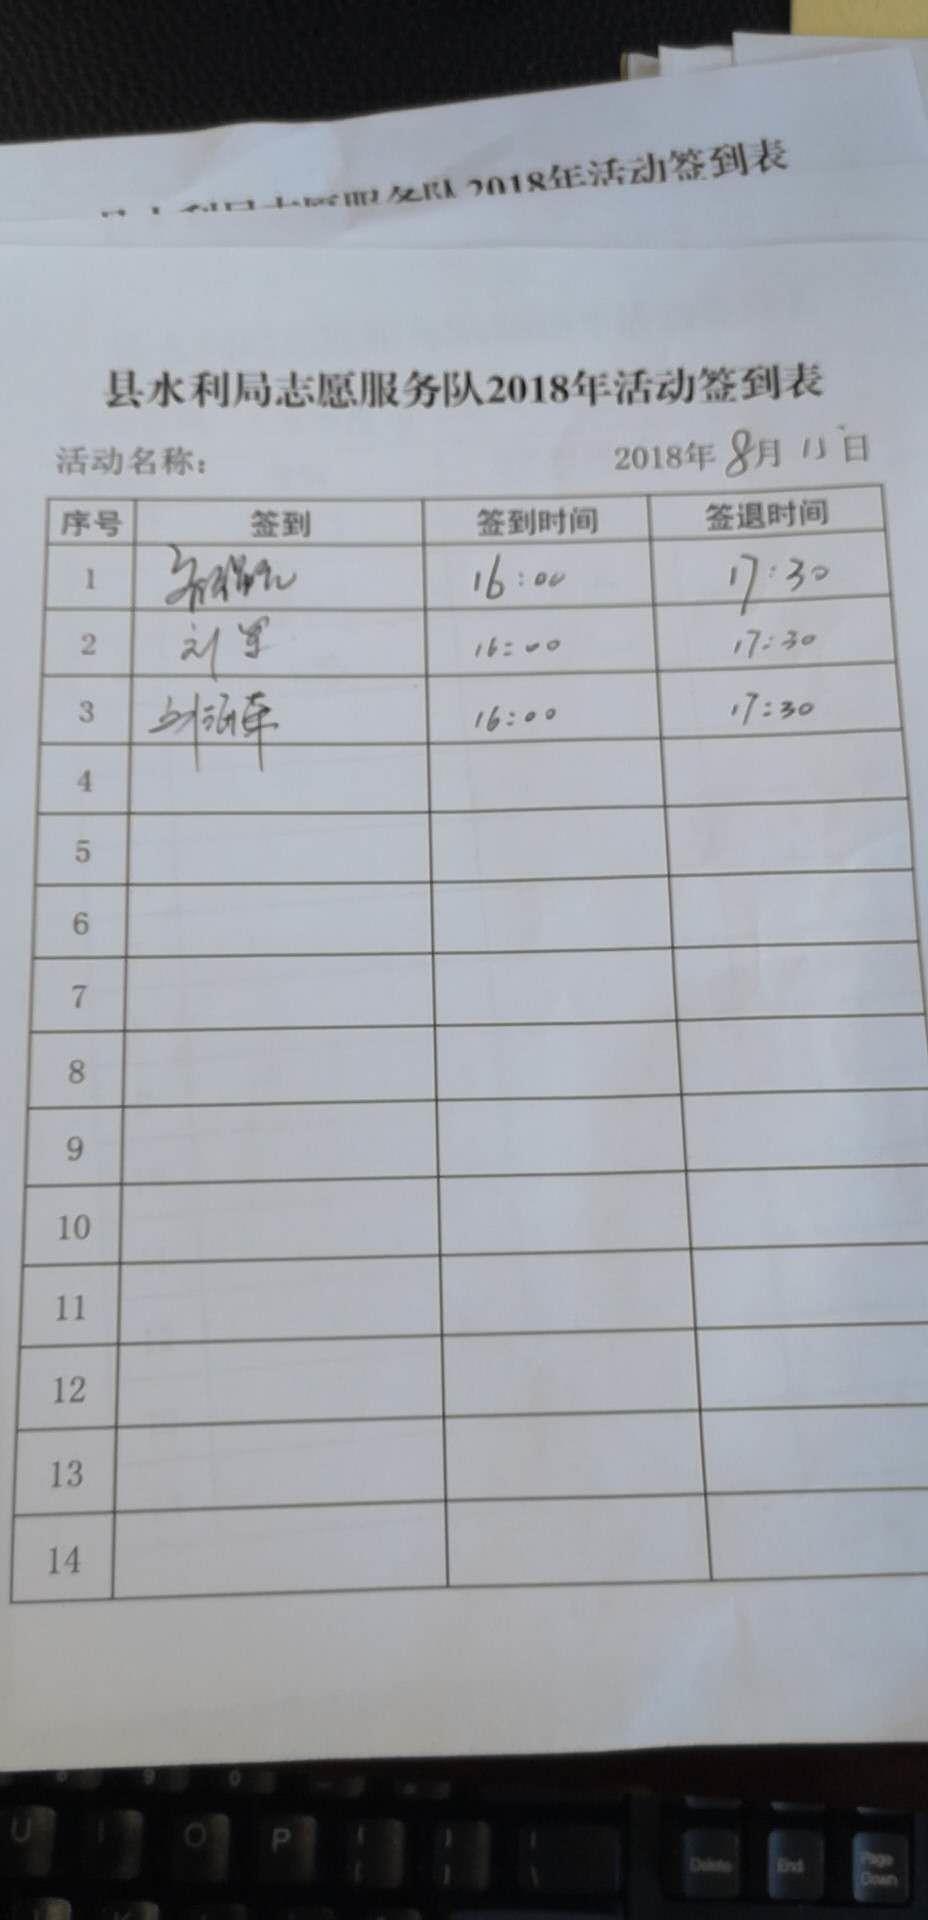 2018年活动签到表
县水利局志愿服务队2018年活动签到表
活动名称： 2018年8月15日
序号 签到 签到时间 签退时间
1 16:00 17:30
2 刘军 16:00 17:30
3 16:00 17:30
4
5
6
7
8
9
10
11
12
13
14
9 0
U I O P [ { ] } | \ Delete End Page Down